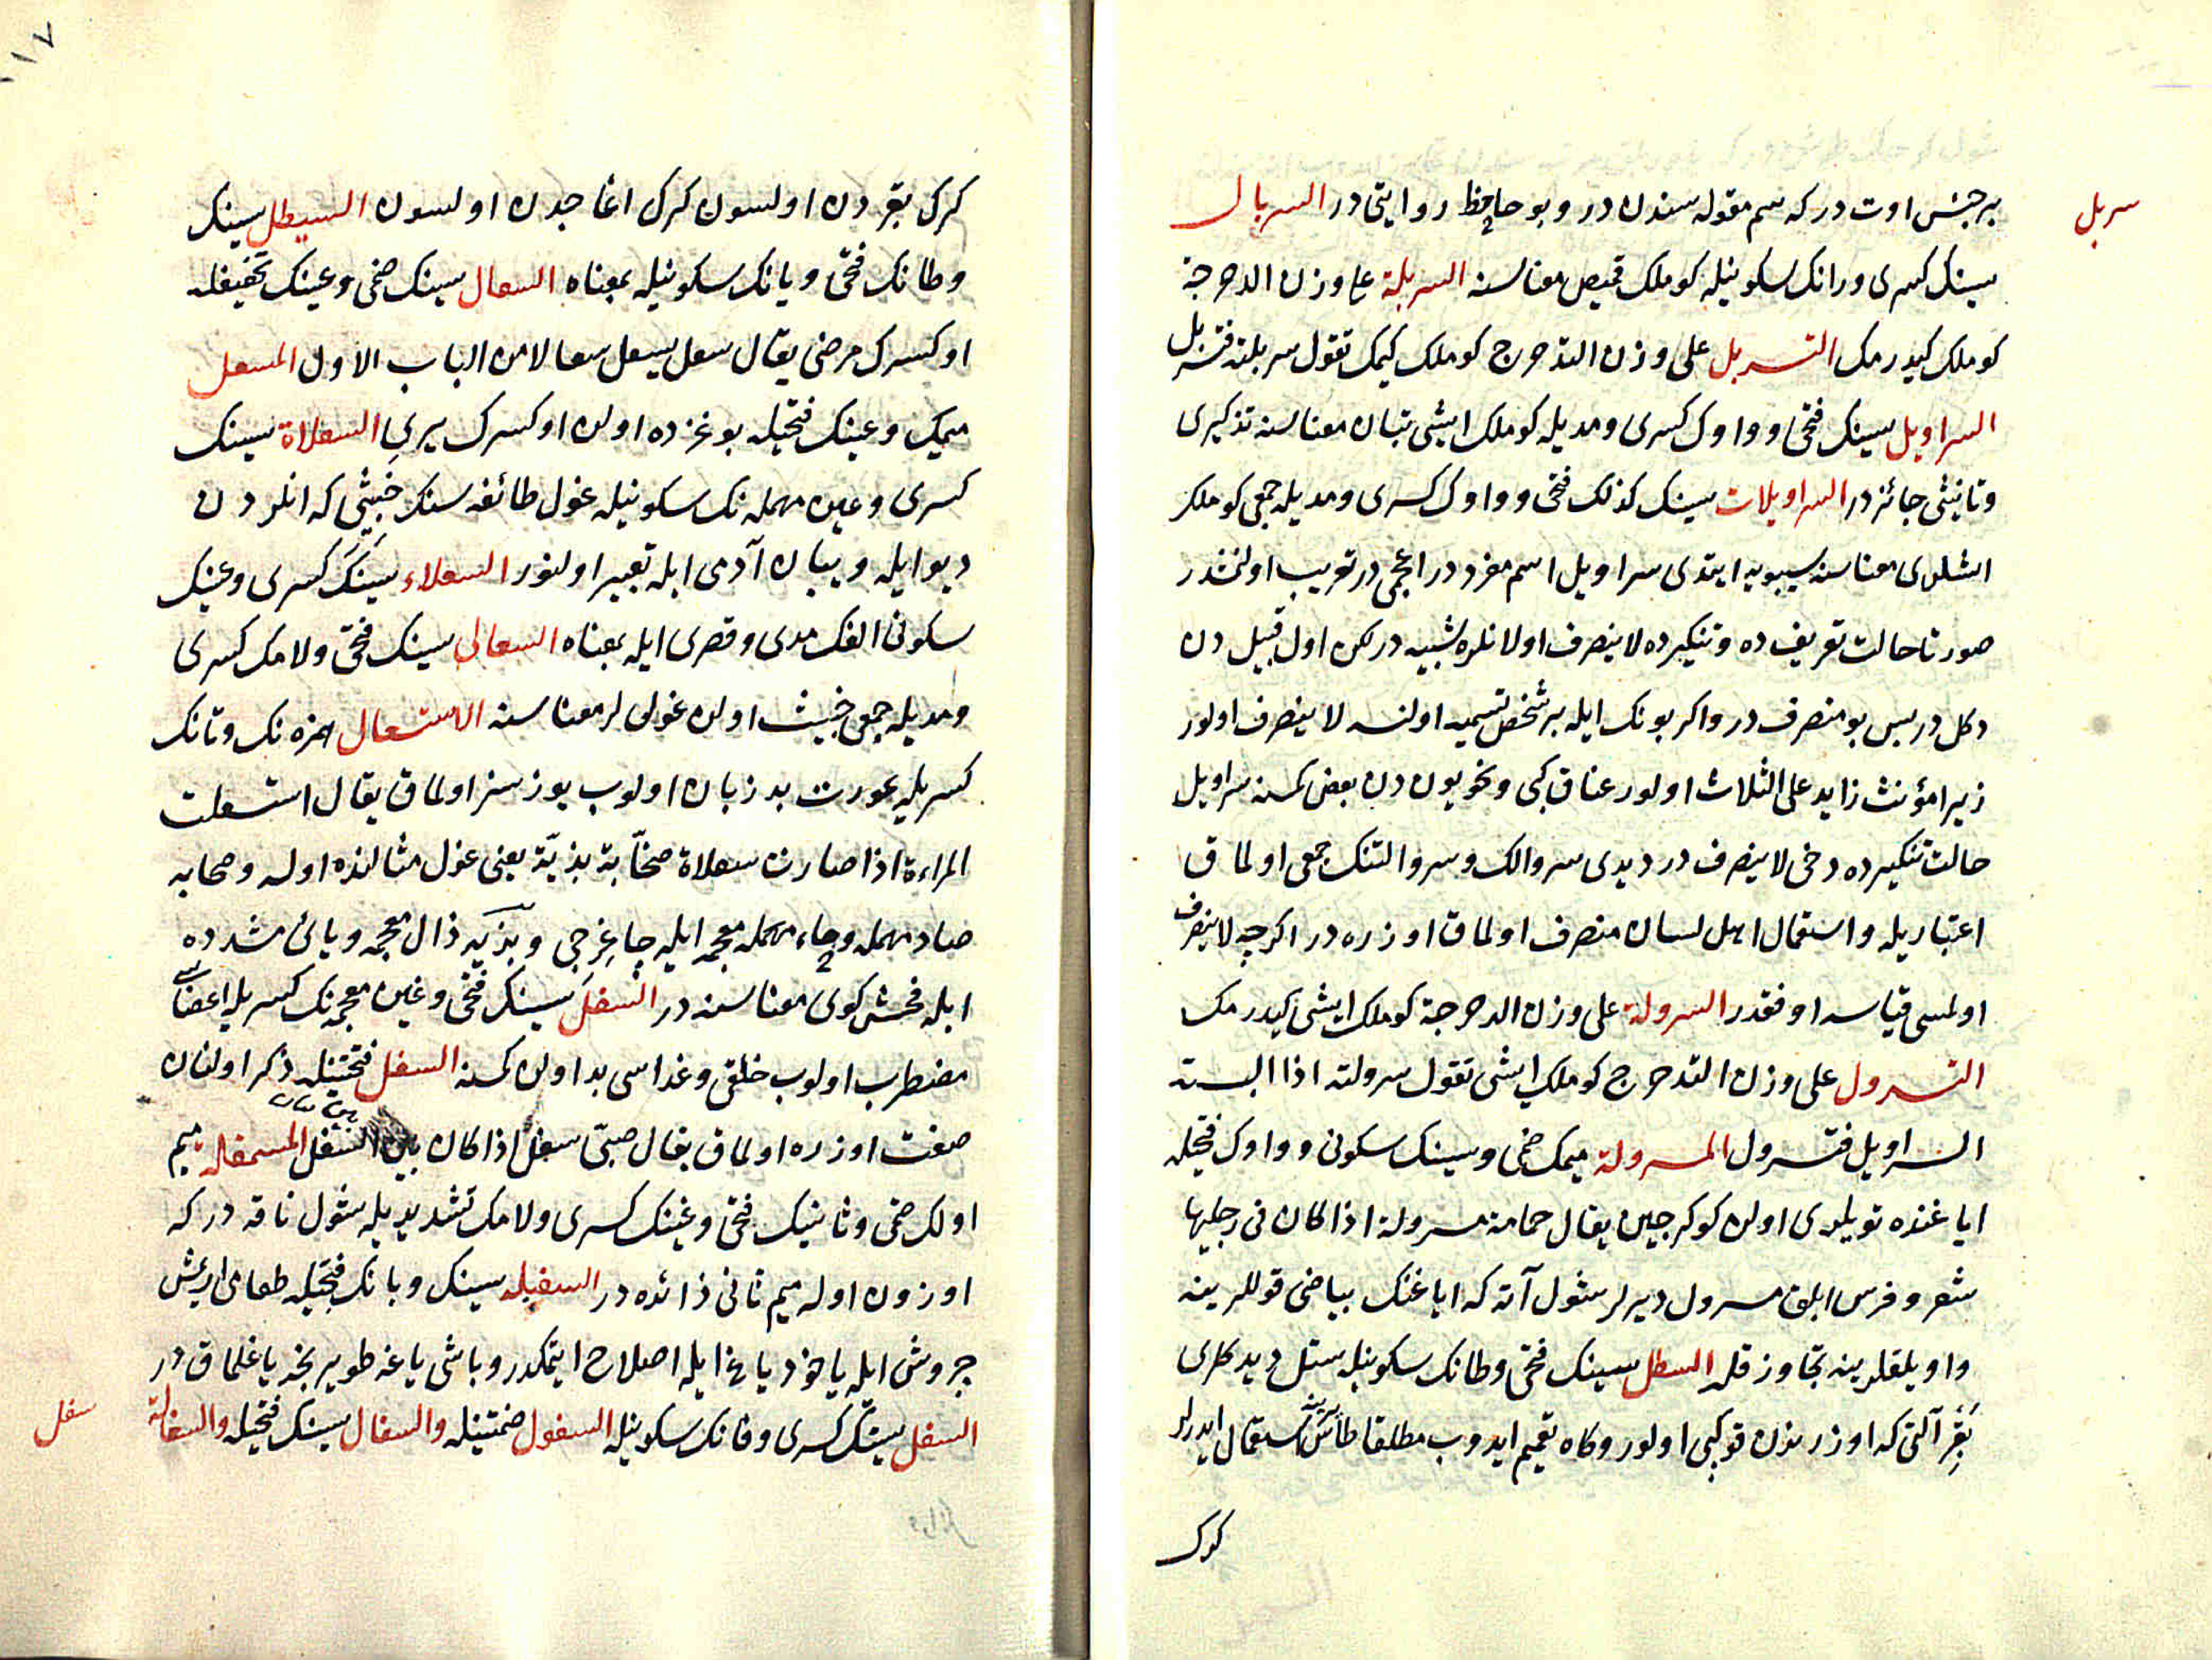 سربل
بر جنس اوت در كه سم مقوله سندن در و بو حافظ روايتى در السربال
سينك كسرى و رانك سكونيله كوملك قميص معناسنه السربلة على وزن الدحرجة
كوملك كيدرمك التسربل على وزن التدحرج كوملك كيمك تقول سربلته فتسربل
السراويل سينك فتحى و واوك كسرى و مديله كوملك ايشى تبان معناسنه تذكيرى
و تانيثى جائز در السراويلات سينك كذلك فتحى و واوك كسرى و مديله جمعى كوملك
اشلرى معناسنه سيبويه ايتدى سراويل اسم مفرد در اعجمى در تعريب اولنمشدر
صورتا حالت تعريف ده و تنكيرده لا ينصرف اولانلره شبيه در لكن اول قبيل دن
دكل در پس بو منصرف در و اكر بونك ايله بر شخص تسميه اولنسه لا ينصرف اولور
زيرا مؤنث زايد على الثلاث اولور عناق كبى و نحويون دن بعض كمسنه سراويل
حالت تنكيرده دخى لا ينصرف در ديدى سروالك و سروالتنك جمعى اولماق
اعتباريله و استعمال اهل لسان منصرف اولماق اوزره در اكرچه لا ينصرف
اولمسى قياسه اوفقدر السرولة على وزن الدحرجة كوملك ايشى كيدرمك
التسرول على وزن التدحرج كوملك ايشى تقول سرولته اذا البسته
السراويل فتسرول المسرولة ميمك ضمى و سينك سكونى و واوك فتحيله
اياغنده تويلرى اولن كوكرجين يقال حمامة مسرولة اذا كان فى رجليها
شعر و فرس ابلق مسرول ديرلر شول آته كه اياغنك بياضى قوللرينه
و اويلقلرينه تجاوز قله السطل سينك فتحى و طانك سكونيله ستل ديدكلرى
بقر آلتى كه اوزرندن قوپى اولور و كاه تعميم ايدوب مطلقا طاس يرينه استعمال ايدرلر
كرك
١١٧
كرك بقردن اولسون كرك اغاجدن اولسون السيطل سينك
و طانك فتحى و يانك سكونيله بمعناه السعال سينك ضمى و عينك تخفيفله
اوكسرك مرضى يقال سعل يسعل سعالا من الباب الاول المسعل
ميمك و عينك فتحيله بوغزده اولن اوكسرك يرى السعلاة سينك
كسرى و عين مهمله نك سكونيله غول طائفه سنك خبيثى كه انلردن
ديو ايله و يبان آدمى ايله تعبير اولنور السعلاء سينك كسرى و عينك
سكونى الفك مدى و قصرى ايله بمعناه السعالى سينك فتحى و لامك كسرى
و مديله جمعى خبيث اولن غوللر معناسنه الاستعال همزه نك و تانك
كسريله عورت بد زبان اولوب يوزسز اولماق يقال استسعلت
المراءة اذا صارت سعلاة صخّابة بذيّة يعنى غول مثالنده اوله و صخابه
صاد مهمله و خاء معجمه ايله چاغرجى و بذيه ذال معجمه و يائ مشدده
ايله فحش كوى معناسنه در السغل سينك فتحى و غين معجمه نك كسريله اعضاسى
مضطرب اولوب خلقى و غداسى بد اولن كمسنه السغل فتحتيله ذكر اولنان
صفت اوزره اولماق يقال صبىّ سغل اذا كان بين السغل المسمغلة ميم
اولك ضمى و ثانينك فتحى و غينك كسرى و لامك تشديديله شول ناقه در كه
اوزون اوله ميم ثانى زائده در السغبله سينك و بانك فتحيله طعامى اريمش
چروش ايله ياخود ياغ ايله اصلاح ايتمكدر و باشى ياغه طويرنجه ياغلماق در
السفل سينك كسرى و فانك سكونيله السفول ضمتيله والسفال سينك فتحيله والسفالة
سفل